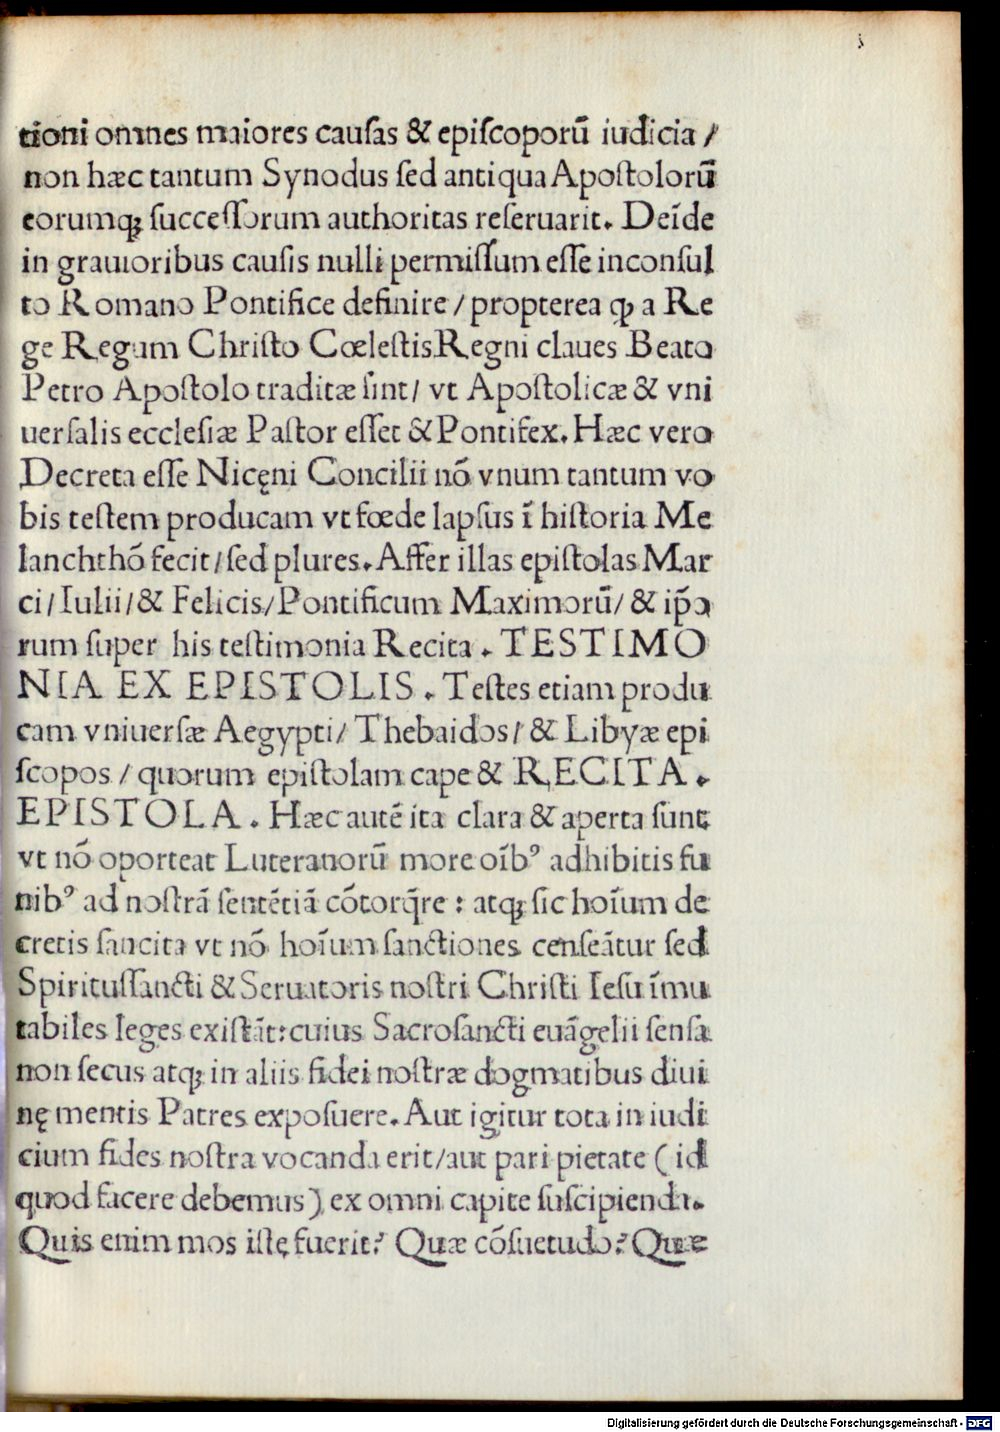 tioni omnes maiores causas & episcoporū iudicia /
non hæc tantum Synodus sed antiqua Apostolorū
eorumqꝫ successorum authoritas reseruarit. Deīde
in grauioribus causis nulli permissum esse inconsul
to Romano Pontifice definire / propterea ꝙ a Re
ge Regum Christo Cœlestis Regni claues Beato
Petro Apostolo traditæ sint / vt Apostolicæ & vni
uersalis ecclesiæ Pastor esset & Pontifex. Hæc vero
Decreta esse Nicęni Concilii nō vnum tantum vo
bis testem producam vt fœde lapsus ī historia Me
lanchthō fecit / sed plures. Affer illas epistolas Mar
ci / Iulii / & Felicis / Pontificum Maximorū / & ip̄o
rum super his testimonia Recita. TESTIMO
NIA EX EPISTOLIS. Testes etiam produ
cam vniuersæ Aegypti / Thebaidos / & Libyæ epi
scopos / quorum epistolam cape & RECITA.
EPISTOLA. Hæc autē ita clara & aperta sunt
vt nō oporteat Luteranorū more oībꝰ adhibitis fu
nibꝰ ad nostrā sentētiā cōtorq̄re : atqꝫ sic hoīum de
cretis sancita vt nō hoīum sanctiones censeātur sed
Spiritussancti & Seruatoris nostri Christi Iesu īmu
tabiles leges existāt: cuius Sacrosancti euāgelii sensa
non secus atqꝫ in aliis fidei nostræ dogmatibus diui
nę mentis Patres exposuere. Aut igitur tota in iudi
cium fides nostra vocanda erit / aut pari pietate ( id
quod facere debemus ) ex omni capite suscipienda.
Quis enim mos istę fuerit? Quæ cōsuetudo? Quæ
Digitalisierung gefördert durch die Deutsche Forschungsgemeinschaft - DFG